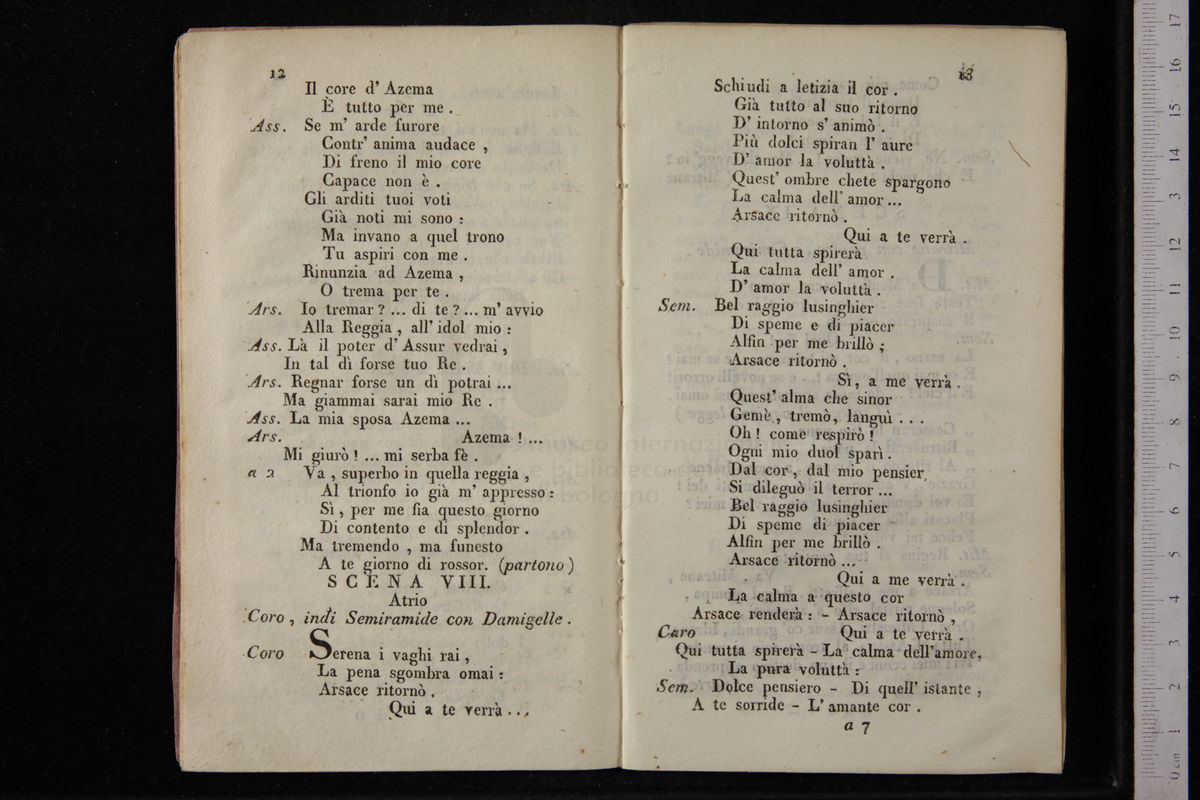 12
Il core d' Azema
È tutto per me .
Ass. Se m' arde furore
Contr' anima audace ,
Di freno il mio core
Capace non è .
Gli arditi tuoi voti
Già noti mi sono :
Ma invano a quel trono
Tu aspiri con me .
Rinunzia ad Azema ,
O trema per te .
Ars. Io tremar ? ... di te ? ... m' avvio
Alla Reggia , all' idol mio :
Ass. Là il poter d' Assur vedrai ,
In tal dì forse tuo Re .
Ars. Regnar forse un dì potrai ...
Ma giammai sarai mio Re .
Ass. La mia sposa Azema ...
Ars. Azema ! ...
Mi giurò ! ... mi serba fè .
a 2 Va , superbo in quella reggia ,
Al trionfo io già m' appresso :
Sì , per me fia questo giorno
Di contento e di splendor .
Ma tremendo , ma funesto
A te giorno di rossor. (partono)
SCENA VIII.
Atrio
Coro , indi Semiramide con Damigelle .
Coro Serena i vaghi rai ,
La pena sgombra omai :
Arsace ritornò .
Qui a te verrà ...
13
Schiudi a letizia il cor .
Già tutto al suo ritorno
D' intorno s' animò .
Più dolci spiran l' aure
D' amor la voluttà .
Quest' ombre chete spargono
La calma dell' amor ...
Arsace ritornò .
Qui a te verrà .
Qui tutta spirerà
La calma dell' amor .
D' amor la voluttà .
Sem. Bel raggio lusinghier
Di speme e di piacer
Alfin per me brillò ;
Arsace ritornò .
Sì , a me verrà .
Quest' alma che sinor
Gemè , tremò, languì ...
Oh ! come respirò !
Ogni mio duol sparì .
Dal cor , dal mio pensier
Si dileguò il terror ...
Bel raggio lusinghier
Di speme di piacer
Alfin per me brillò .
Arsace ritornò ...
Qui a me verrà .
La calma a questo cor
Arsace renderà : - Arsace ritornò ,
Caro Qui a te verrà .
Qui tutta spirerà - La calma dell'amore,
La pura voluttà :
Sem. Dolce pensiero - Di quell' istante ,
A te sorride - L' amante cor .
a 7
museo internazionale
e biblioteca della
bologna
0 cm 1 2 3 4 5 6 7 8 9 10 11 12 13 14 15 16 17